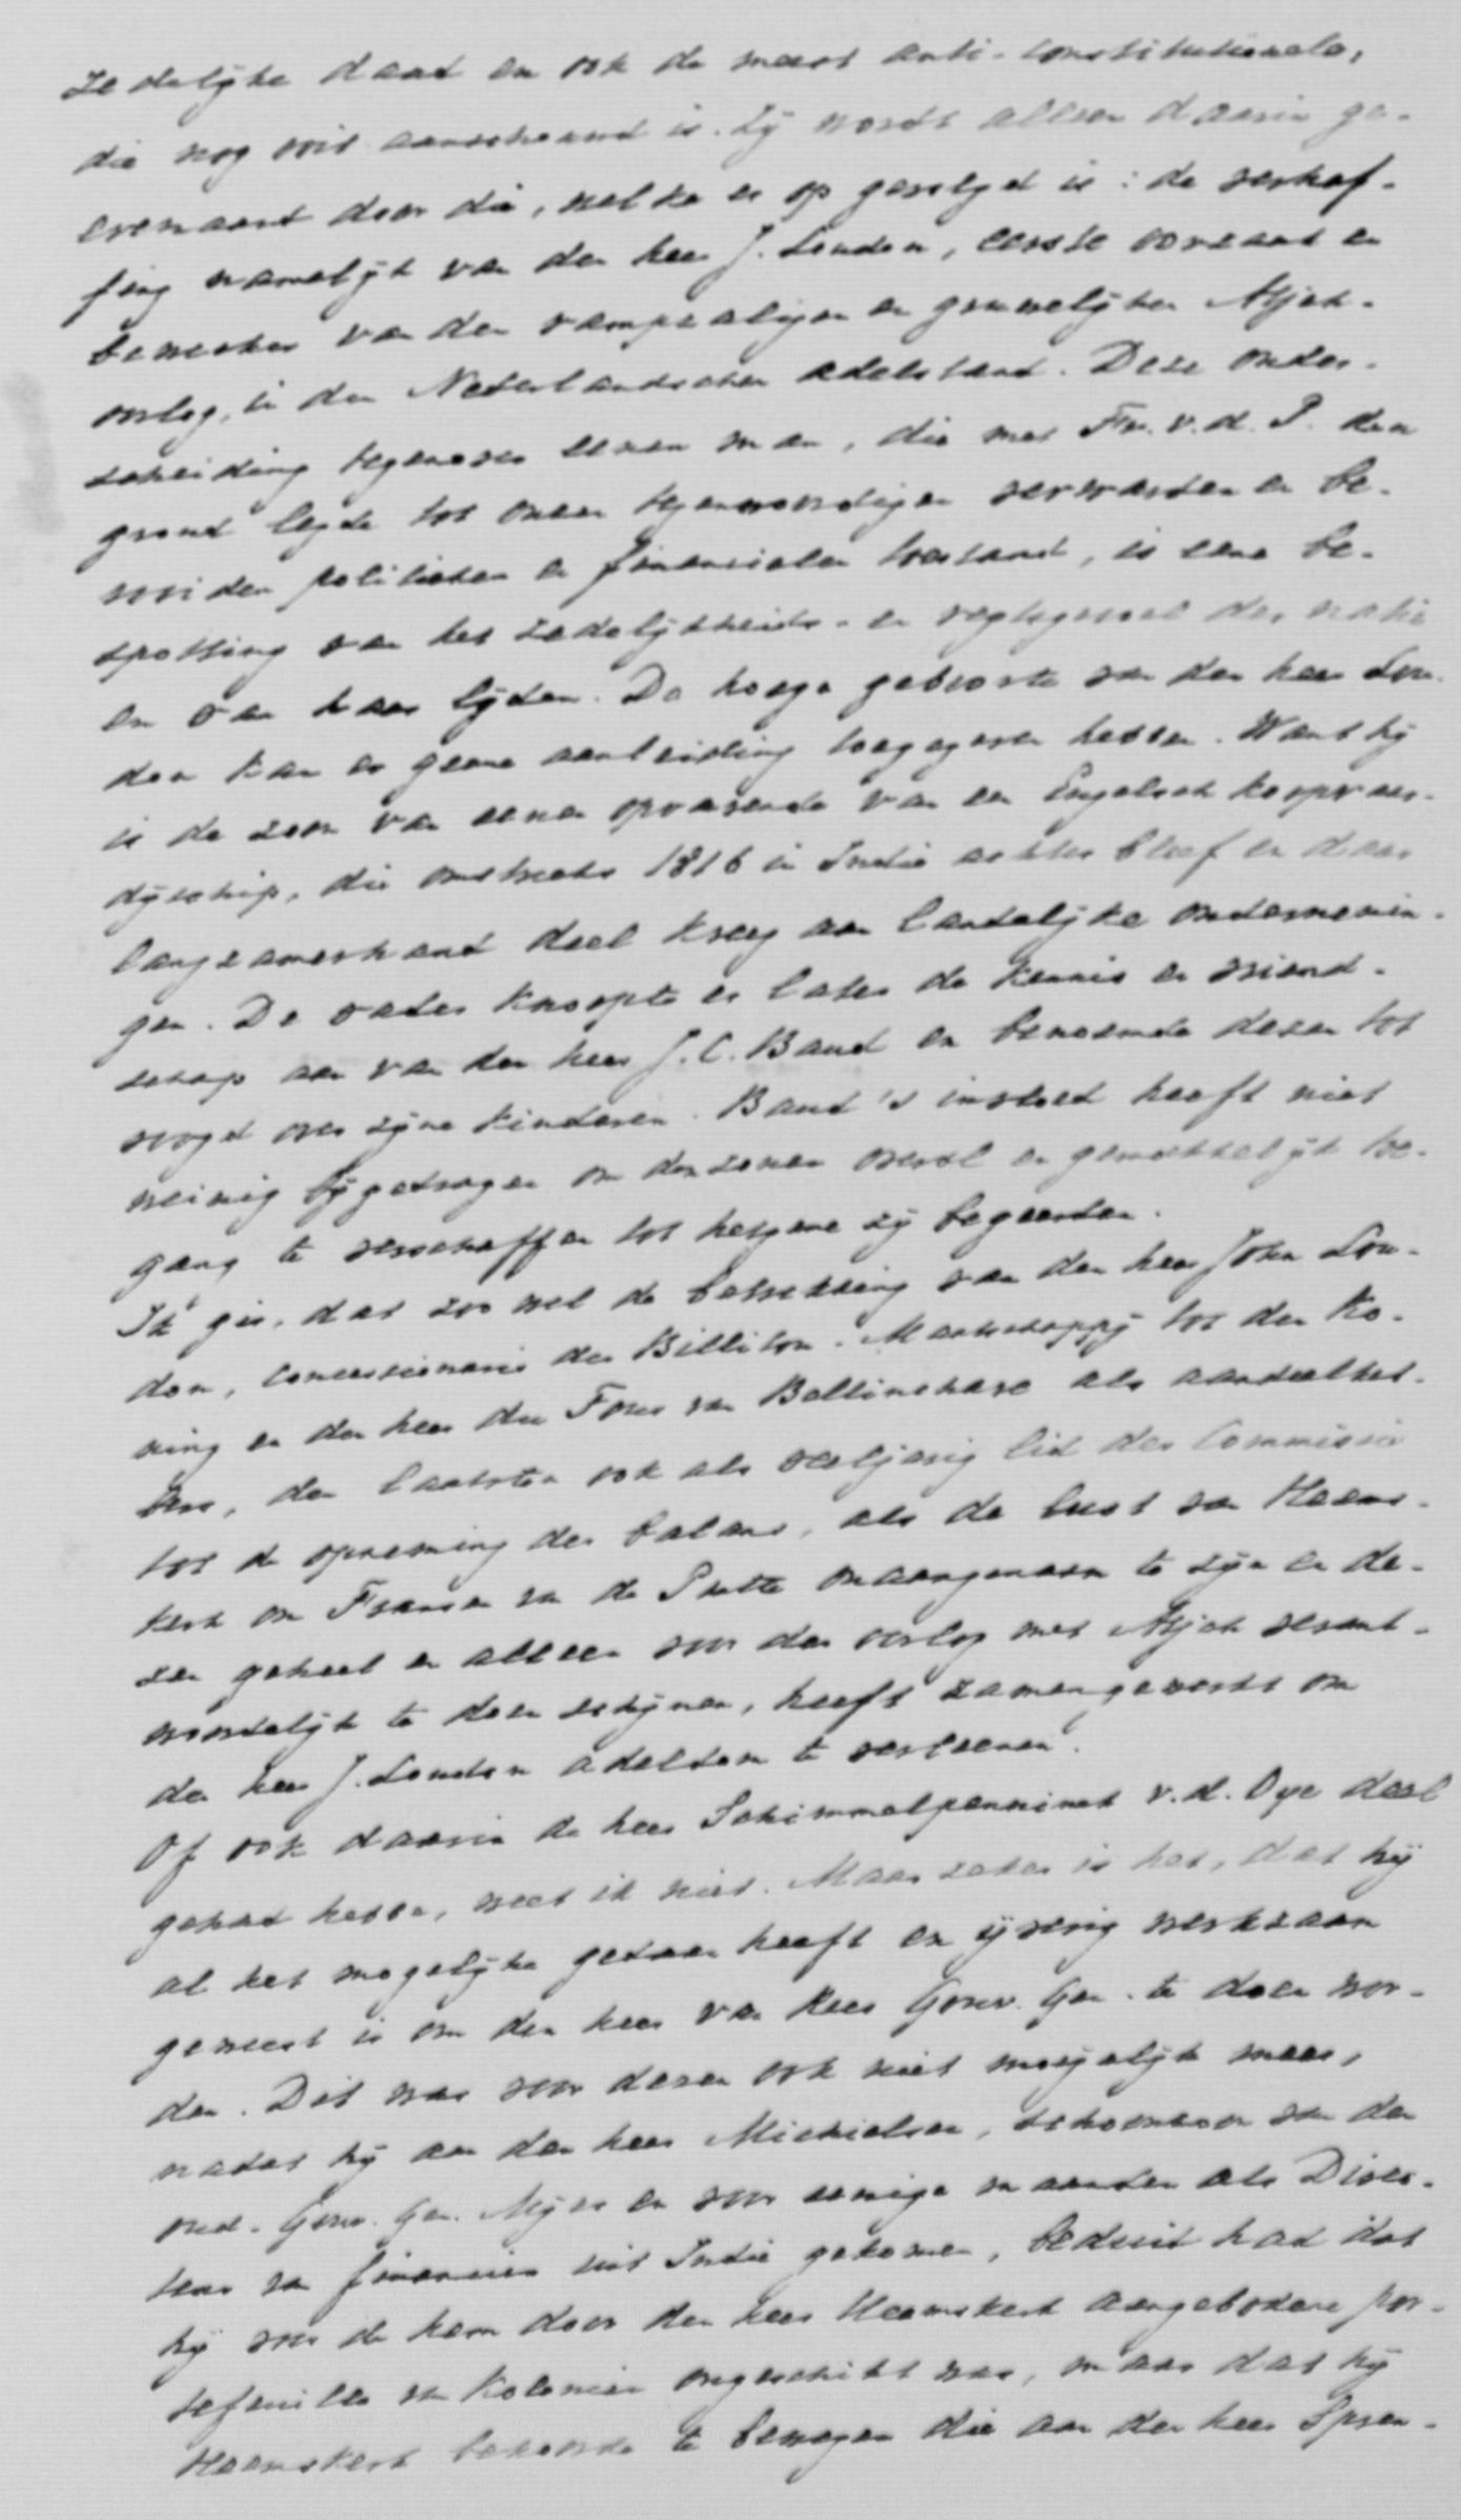 zedelijke daad en ook de meest anti-constitutioneele,
die nog ooit aanschouwd is. Zij wordt alleen daarin ge-
evenaard door die, welke er op gevolgd is: de verhef-
fing namelijk van den heer J. Loudon, eerste oorzaak en
bewerker van den rampzaligen en gruwelijken Atjeh-
oorlog, in den Nederlandschen adelstand. Deze onder-
scheiding tegenover eenen man, die met Fr. v. d. P. den
grond legde tot onzen tegenwoordigen verwarden en be-
roerden politieken en financieelen toestand, is eene be-
spotting van het zedelijkheids- en regtsgevoel der natie
en van haar lijden. De hooge geboorte van den heer Lou-
don kan er geene aanleiding toe gegeven hebben. Want hij
is de zoon van eenen opvarende van een Engelsch koopvaar-
dijschip, die omstreeks 1816 in Indië achter bleef en daar
langzamerhand deel kreeg aan landelijke ondernemin-
gen. De vader knoopte er later de kennis en vriend-
schap aan van den heer J. C. Baud en benoemde dezen tot
voogd over zijne kinderen. Baud's invloed heeft niet
weinig bijgedragen om den zonen overal en gemakkelijk toe-
gang te verschaffen tot hetgene zij begeerden.
Ik gis, dat zoo wel de betrekking van den heer John Lou-
don, concessionaris der Billiton-Maatschappij tot den Ko-
ning en den heer du Tour van Bellinchave als aandeelhou-
ders, den laatsten ook als veeljarig lid der Commissie
tot de opneming der balans, als de lust van Heems-
kerk om Fransen van de Putte onaangenaam te zijn en de-
zen geheel en alleen voor den oorlog met Atjeh verant-
woordelijk te doen schijnen, heeft zamengewerkt om
den heer J. Loudon adeldom te verleenen.
Of ook daarin de heer Schimmelpenninck v. d. Oye deel
gehad hebbe, weet ik niet. Maar zeker is het, dat hij
al het mogelijke gedaan heeft en ijverig werkzaam
geweest is om den heer van Rees Gouv. Gen. te doen wor-
den. Dit was voor dezen ook niet moeijelijk meer,
nadat hij aan den heer Michielsen, schoonzoon van den
oud-Gouv. Gen. Mijer en voor eenige maanden als Direc-
teur van financien uit Indië gekomen, beduid had dat
hij voor de hem door den heer Heemskerk aangebodene por-
tefeuille van Kolonien ongeschikt was, maar dat hij
Heemskerk behoorde te bewegen die aan den heer Spren-